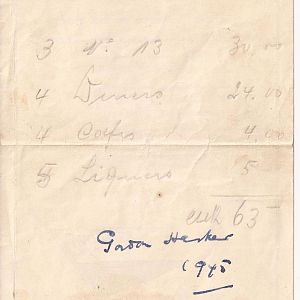 3 No 13 30.00
4 Diners 24.00
4 Cafes 4.00
5 Liquers 5
63
Gordon Harker
1945